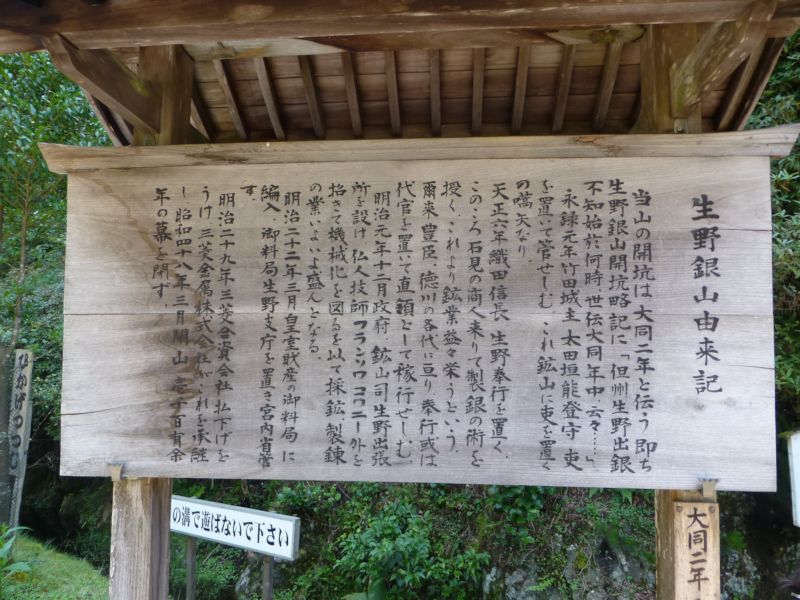 生野銀山由来記
当山の開坑は大同二年と伝う 即ち
生野銀山開坑略記に「但州生野出銀
不知始於何時 世伝大同年中云々……」
永録元年竹田城主 太田垣能登守 吏
を置いて管せしむ これ鉱山に吏を置く
の嚆矢なり
天正六年織田信長 生野奉行を置く、
このころ石見の商人来りて製銀の術を
授く、これより鉱業益々栄うという、
爾来 豊臣、徳川の各代に亘り 奉行或は
代官を置いて直領として稼行せしむ、
明治元年十二月政府 鉱山司生野出張
所を設け 仏人技師フランソワコワニー外を
招きて機械化を図るを以て採鉱製錬
の業いよいよ盛んとなる、
明治二十二年三月皇室財産の御料局に
編入 御料局生野支庁を置き宮内省管
す、
明治二十九年三菱合資会社 払下げを
うけ 三菱金属株式会社がこれを承継
し 昭和四十八年三月閉山 壱千百有余
年の幕を閉ず、
ひかげつつじ
の溝で遊ばないで下さい
大同二年